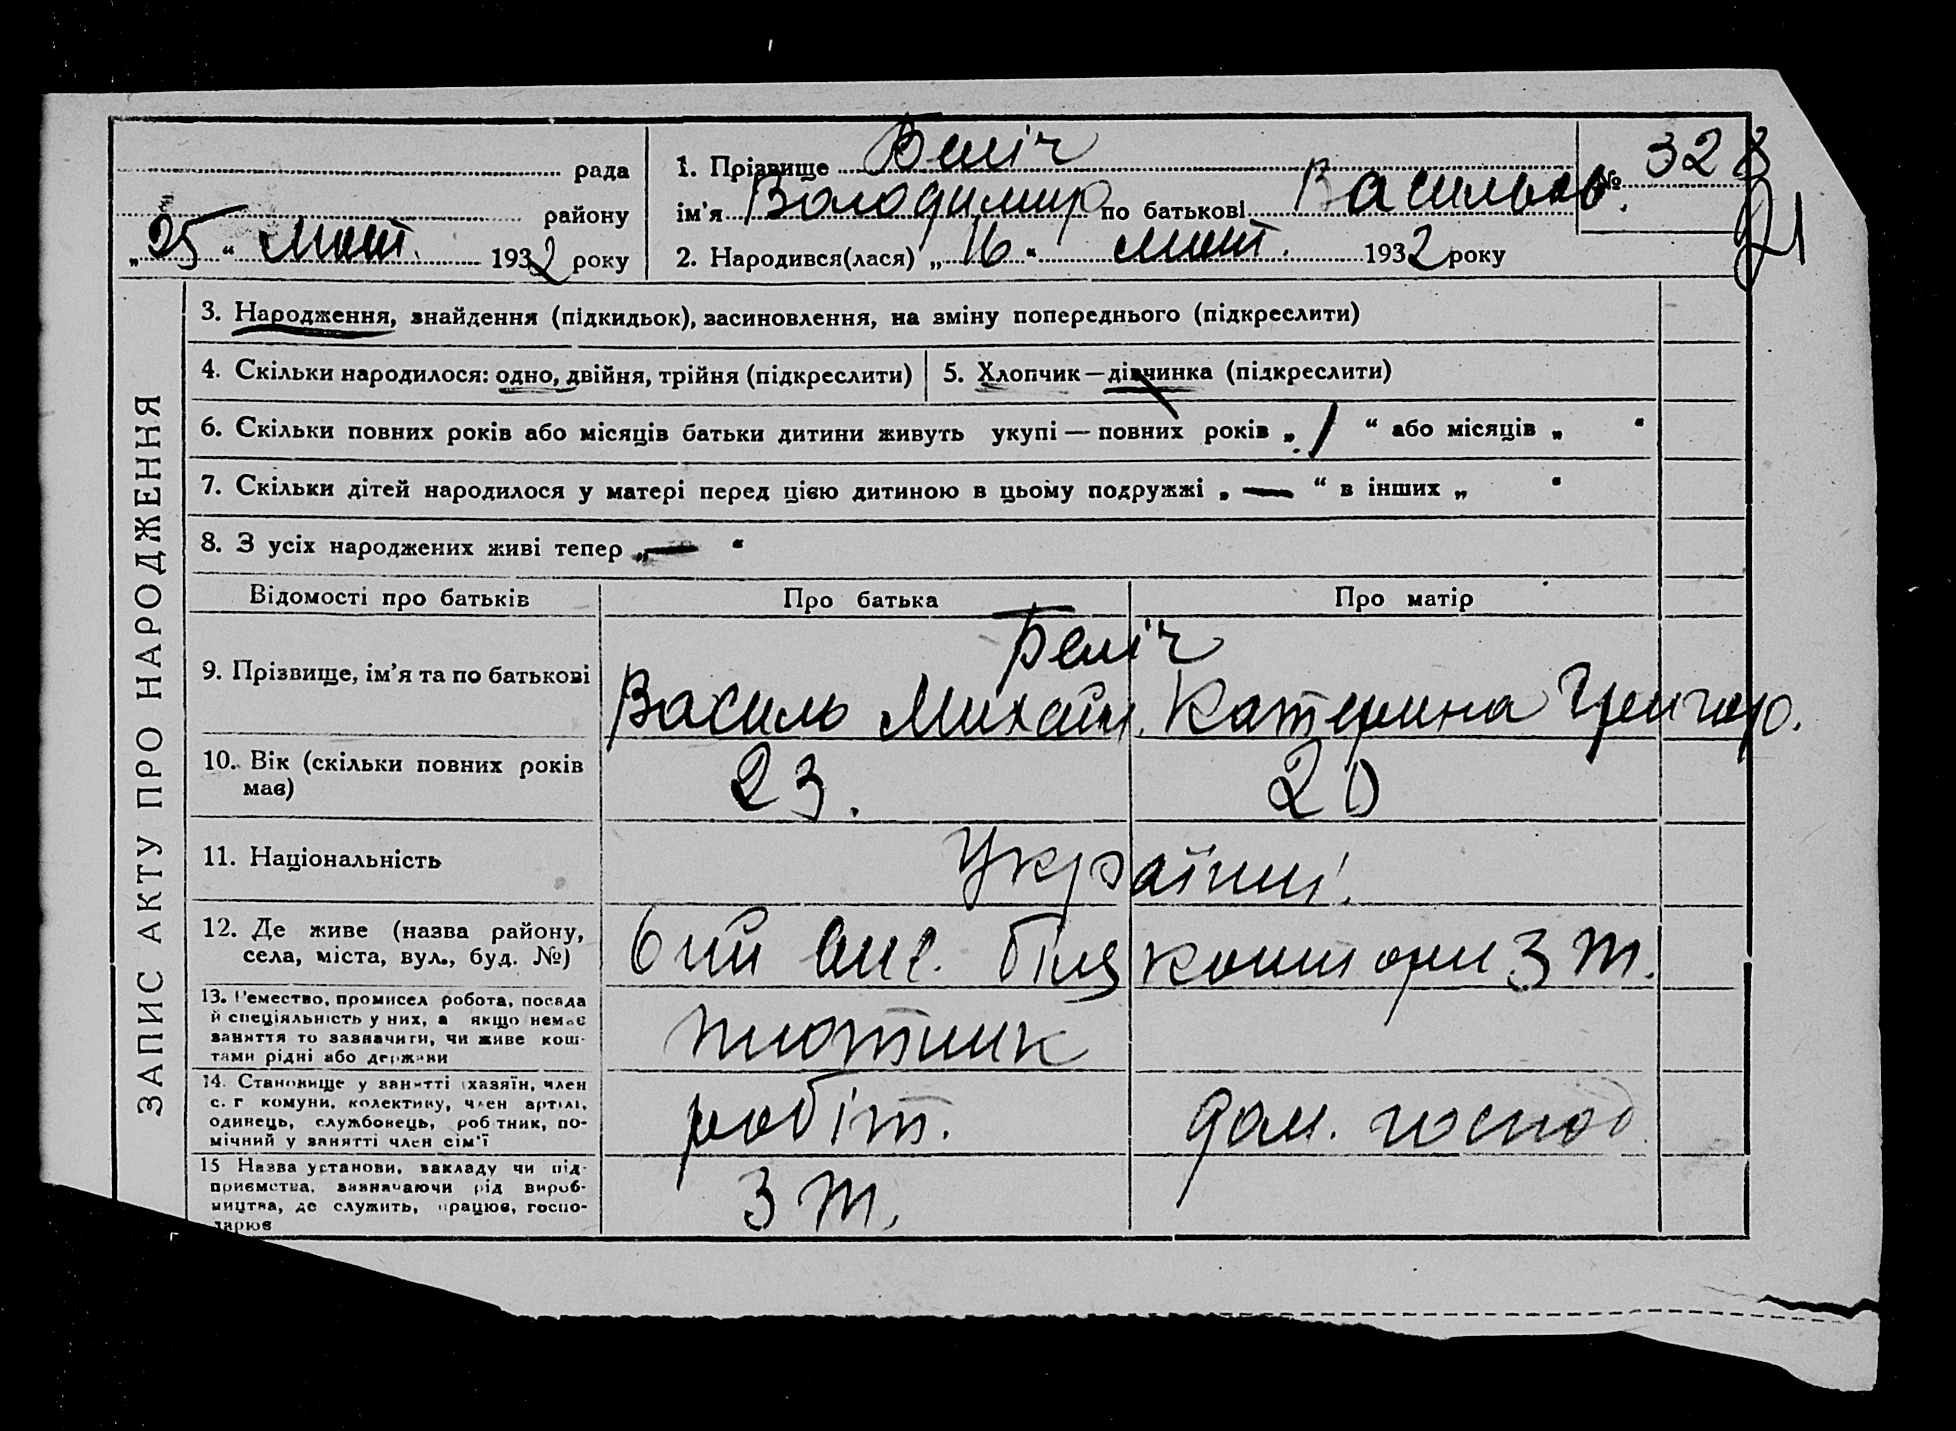 рада
району
„25“ лют. 1932 року
1. Прізвище Беліч
ім'я Володимир по батькові Васильов.
№ 328
21
2. Народився(лася) „16“ лют. 1932 року
ЗАПИС АКТУ ПРО НАРОДЖЕННЯ
3. Народження, знайдення (підкидьок), засиновлення, на зміну попереднього (підкреслити)
4. Скільки народилося: одно, двійня, трійня (підкреслити)
5. Хлопчик—дівчинка (підкреслити)
6. Скільки повних років або місяців батьки дитини живуть укупі — повних років „1“ або місяців „ “
7. Скільки дітей народилося у матері перед цією дитиною в цьому подружжі „—“ в інших „ “
8. З усіх народжених живі тепер „—“
Відомості про батьків
Про батька
Про матір
9. Прізвище, ім'я та по батькові
Беліч
Василь Михайл. Катерина Григор.
10. Вік (скільки повних років
має)
23.
20
11. Національність
Україниці.
12. Де живе (назва району,
села, міста, вул., буд. №)
6 ий біля контори З Т.
13. Ремество, промисел робота, посада
й спеціяльність у них, а якщо немає
заняття то зазначити, чи живе кош-
тами рідні або держави
плотник
14. Становище у занятті (хазяїн, член
с. г комуни, колективу, член артілі,
одинець, службовець, робітник, по-
мічний у занятті член сім'ї
робіт.
дом. господ.
15 Назва установи, закладу чи під-
приємства, зазначаючи рід вироб-
ництва, де служить, працює, госпо-
дарює
З Т.